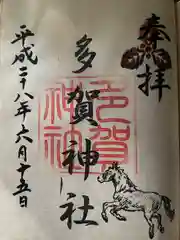 奉拝
多賀神社
平成二十八年六月十五日
多賀神社